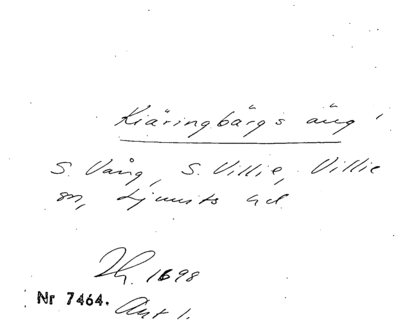 Kiäringbärgs äng
S. Vång, S. Villie, Villie
sn, Ljunits hd
Lh. 1698
Nr 7464. Akt 1.